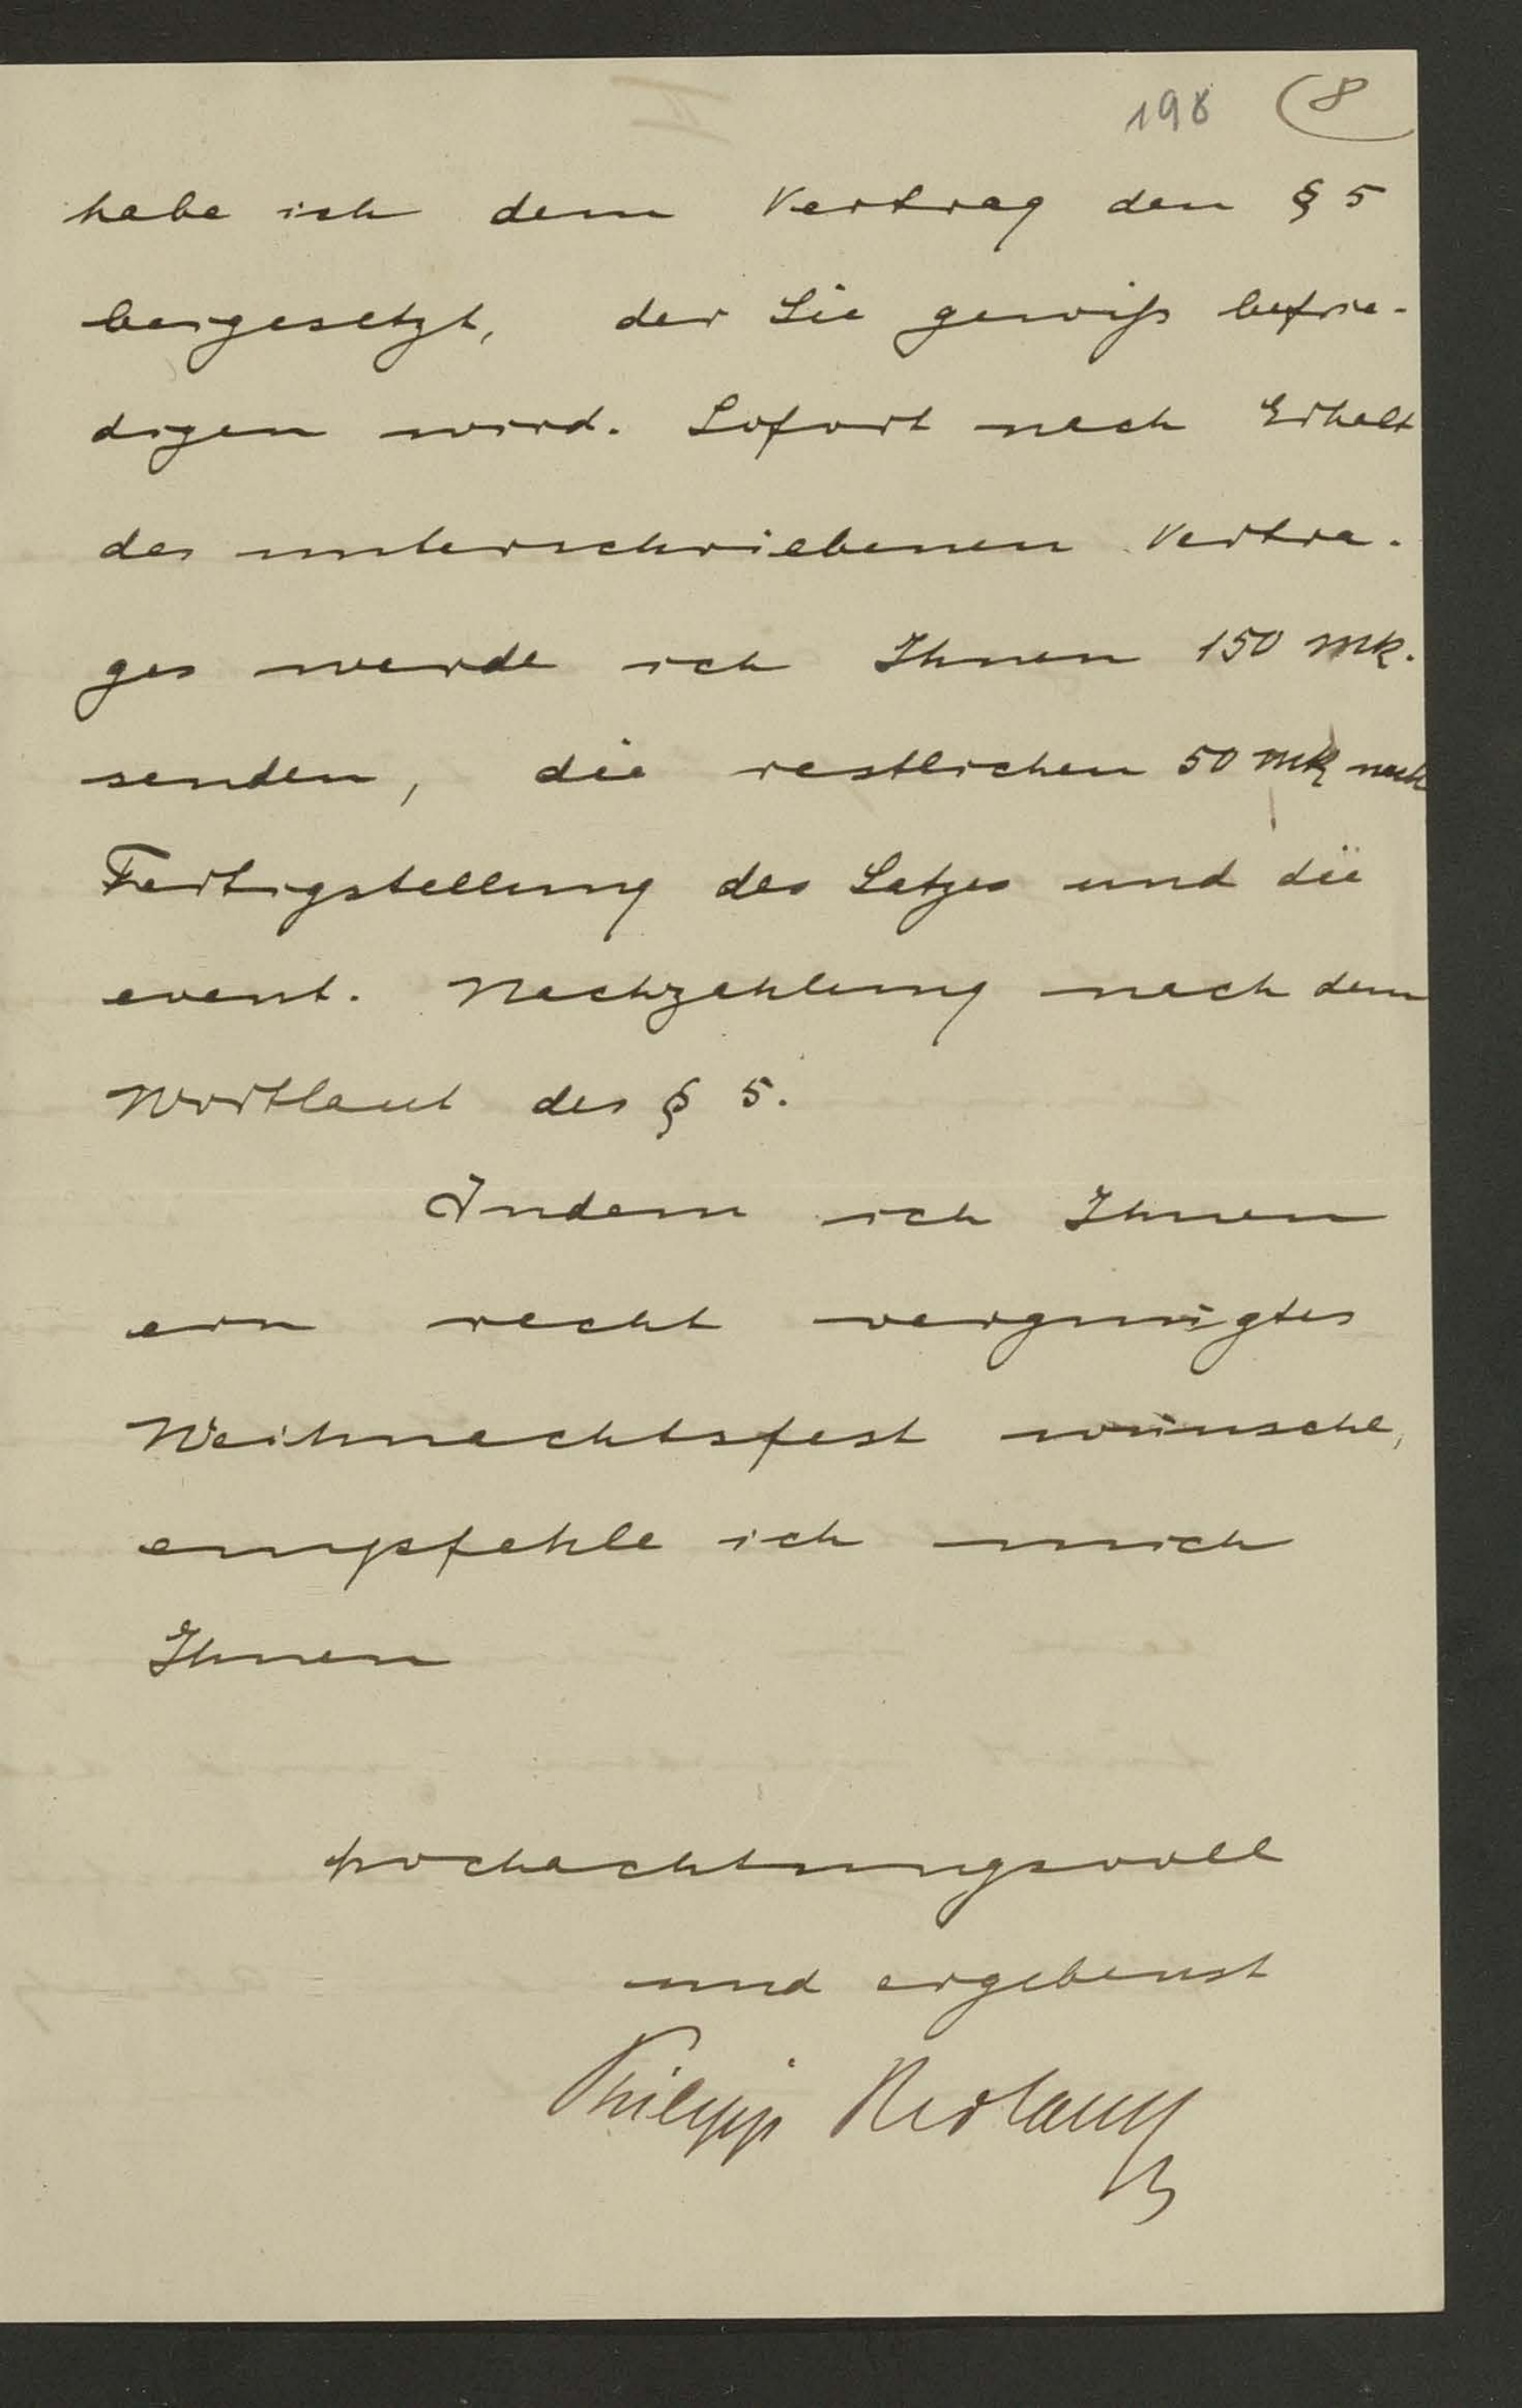 198 8
habe ich dem Vertrag den § 5
beigesetzt, der Sie gewiß befrie-
digen wird. Sofort nach Erhalt
des unterschriebenen Vertra-
ges werde ich Ihnen 150 Mk.
senden, die restlichen 50 Mk nach
Fertigstellung des Satzes und die
event. Nachzahlung nach dem
Wortlaut des § 5.
Indem ich Ihnen
ein recht vergnügtes
Weihnachtsfest wünsche,
empfehle ich mich
Ihnen
hochachtungsvoll
und ergebenst
Philipp